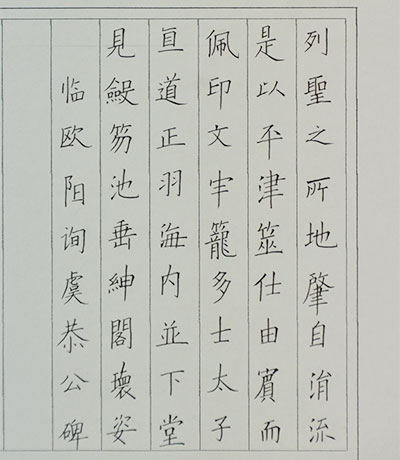 列聖之所地肇自涓流
是以平津筮仕由賓而
佩印文牢籠多士太子
亘道正羽海内並下堂
見笏池垂紳閣瓌姿
临欧阳询虞恭公碑